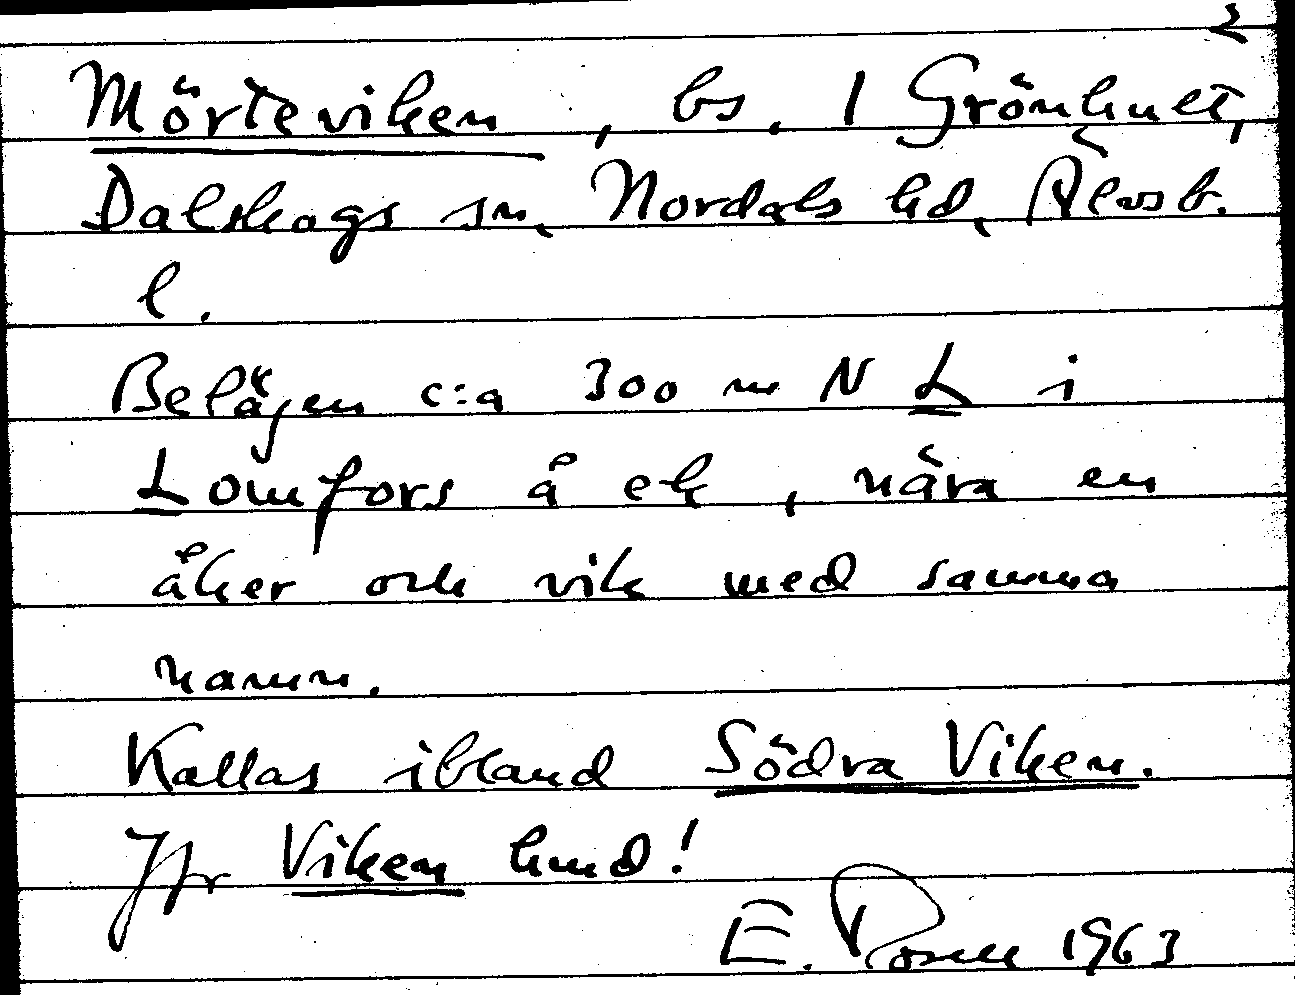 2
Mörteviken, bs. 1 Grönhult,
Dalskogs sn, Nordals hd, Älvsb.
l.
Belägen c:a 300 m N L i
Lomfors å ek, nära en
åker och vik med samma
namn.
Kallas ibland Södra Viken.
Jfr Viken hmd!
E. Rosell 1963